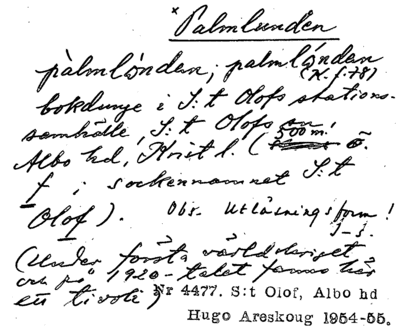 × Palmlunden
pàlmlo̊ndan; palmlo̊ndan
(K. f. 78)
bokdunge i S:t Olofs stations-
samhälle, S:t Olofs sn,
Albo hd, Krist l. (500 m! ö.
f i sockennamnet S:t
Olof). Obs. Utläsningsform!
J-s.
(Under första världskriget
och på 1920-talet fanns här
en tivoli)
Nr 4477. S:t Olof, Albo hd
Hugo Areskoug 1954-55.